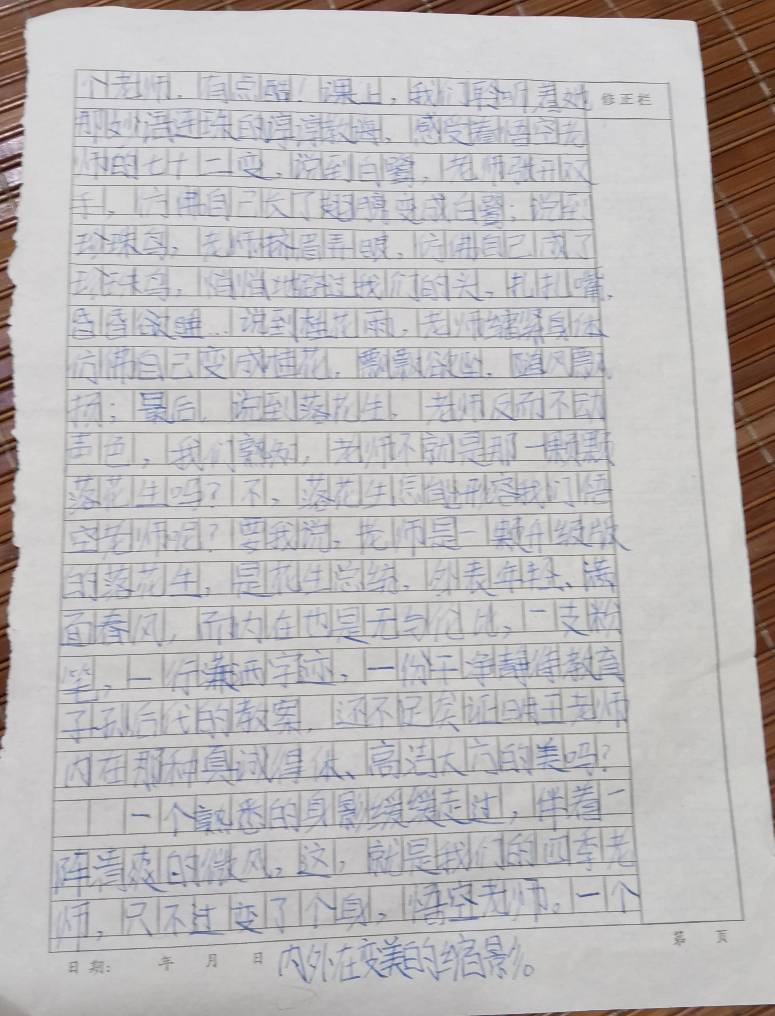 个老师,有点酷!课上,我们聆听着她
修正栏
那妙语连珠的谆谆教诲,感受着悟空老
师的七十二变。说到白鹭,老师张开双
手,仿佛自己长了翅膀变成白鹭;说到
珍珠鸟,老师挤眉弄眼,仿佛自己成了
珍珠鸟,悄悄地踩过我们的头、扎扎嘴,
昏昏欲睡…说到桂花雨,老师缩紧身体
仿佛自己变成桂花,飘飘欲坠,随风飘
扬;最后,说到落花生,老师反而不动
声色,我们熟知,老师不就是那一颗颗
落花生吗?不,落花生怎能形容我们悟
空老师呢?要我说,老师是一颗升级版
的落花生,是花生总结,外表年轻、满
面春风,而内在也是无与伦比,一支粉
笔,一行潇洒字迹,一份干净静待教育
子孙后代的教案,还不足实证明王老师
内在那种真诚得体、高洁大方的美吗?
一个熟悉的身影缓缓走过,伴着一
阵清爽的微风,这,就是我们的四季老
师,只不过变了个身,悟空老师。一个
第 页
日期: 年 月 日
内外在变美的缩影。